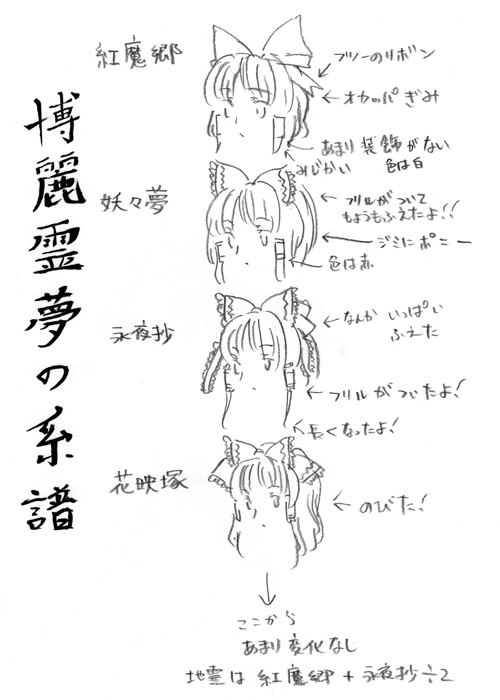 博麗霊夢の系譜
紅魔郷
フツーのリボン
オカッパぎみ
あまり装飾がない
色は白
みじかい
妖々夢
フリルがついて
もようもふえたよ!!
ジミにポニー
色は赤
永夜抄
なんかいっぱい
ふえた
フリルがついたよ!
長くなったよ!
花映塚
のびた!
ここから
あまり変化なし
地霊は紅魔郷+永夜抄÷2